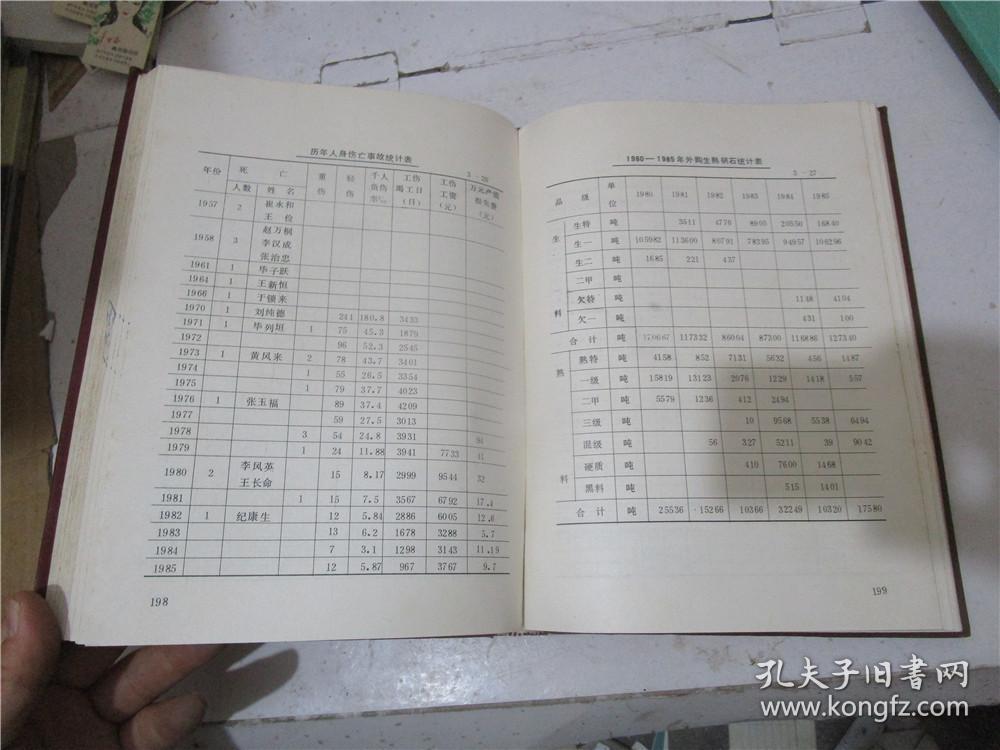 历年人身伤亡事故统计表
3—26
年份 死亡 重伤 轻伤 千人负伤率‰ 工伤竭工日(日) 工伤工资(元) 万元产值损失费(元)
人数 姓名
1957 2 崔永和
王俭
1958 3 赵万桐
李汉成
张治忠
1961 1 毕子跃
1964 1 王新恒
1966 1 于锁来
1970 1 刘纯德 241 180.8 3433
1971 1 毕列垣 1 75 45.3 1879
1972 96 52.3 2545
1973 1 黄风来 2 78 43.7 3401
1974 1 55 26.5 3354
1975 1 79 37.7 4023
1976 1 张玉福 89 37.4 4209
1977 59 27.5 3013
1978 3 54 24.8 3931 94
1979 1 24 11.88 3941 7733 41
1980 2 李风英 15 8.17 2999 9544 32
王长命
1981 1 15 7.5 3567 6792 17.4
1982 1 纪康生 12 5.84 2886 6005 12.6
1983 13 6.2 1678 3288 5.7
1984 7 3.1 1298 3143 11.19
1985 12 5.87 967 3767 9.7
198
1980—1985年外购生熟矾石统计表
3—27
品级 单位 1980 1981 1982 1983 1984 1985
生料
生特 吨 3511 4776 8905 20550 16840
生一 吨 105982 113600 80791 78395 94957 106296
生二 吨 1685 221 437
二甲 吨
欠特 吨 1148 4104
欠一 吨 431 100
合计 吨 117332 86004 87300 116886 127340
熟料
熟特 吨 4158 852 7131 5632 456 1487
一级 吨 15819 13123 2076 1229 1418 557
二甲 吨 5579 1236 412 2494
三级 吨 10 9568 5538 6494
混级 吨 56 327 5211 39 9042
硬质 吨 410 7600 1468
黑料 吨 515 1401
合计 吨 25536 15266 10366 32249 10320 17580
199
孔夫子旧书网
www.kongfz.com